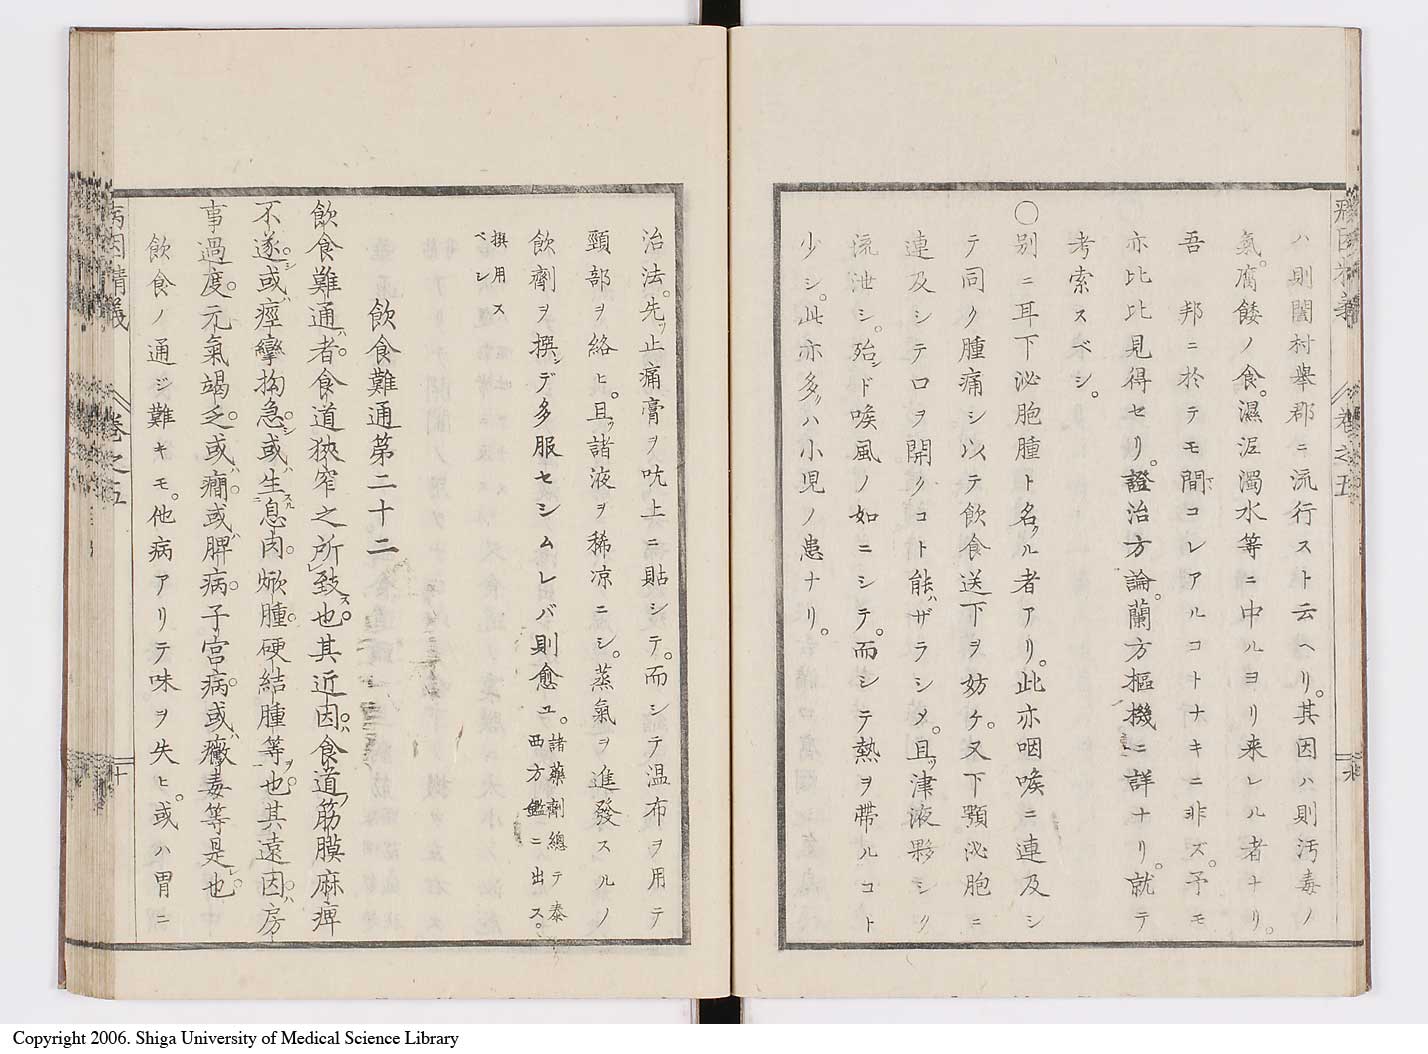 ハ則闔村舉郡ニ流行スト云ヘリ。其因ハ則汚毒ノ
氣。腐餧ノ食。濕泥濁水等ニ中ルヨリ来レル者ナリ。
吾邦ニ於テモ間コレアルコトナキニ非ズ。予モ
亦比比見得セリ。證治方論。蘭方樞機ニ詳ナリ。就テ
考索スベシ。
〇別ニ耳下泌胞腫ト名ツル者アリ。此亦咽喉ニ連及シ
テ同ク腫痛シ以テ飲食送下ヲ妨ケ。又下顎泌胞ニ
連及シテ口ヲ開クコト能ハザラシメ。且ツ津液夥シク
流泄シ。殆ンド喉風ノ如ニシテ。而シテ熱ヲ帶ルコト
少シ。此亦多クハ小児ノ患ナリ。
治法。先ッ止痛膏ヲ吭上ニ貼シテ。而シテ温布ヲ用テ
頸部ヲ絡ヒ。且ッ諸液ヲ稀凉ニシ。蒸氣ヲ進發スルノ
飲劑ヲ撰ンデ多服セシムレバ則愈ユ。諸藥劑總テ泰
西方鑑ニ出ス。
撰用ス
ベシ
飲食難通第二十二
飲食難通ハ者。食道狹窄之所致ス也。其近因ハ。食道ノ筋膜麻痺
不遂シ。或ハ痙攣拘急シ。或ハ生スル息肉。焮腫。硬結腫等ヲ也。其遠因ハ。房
事過度。元氣竭乏。或ハ癇。或ハ脾病。子宮病。或ハ黴毒等是レ也
飲食ノ通シ難キモ。他病アリテ味ヲ失ヒ。或ハ胃ニ
病因精義
卷之五
十
病因精義
卷之五